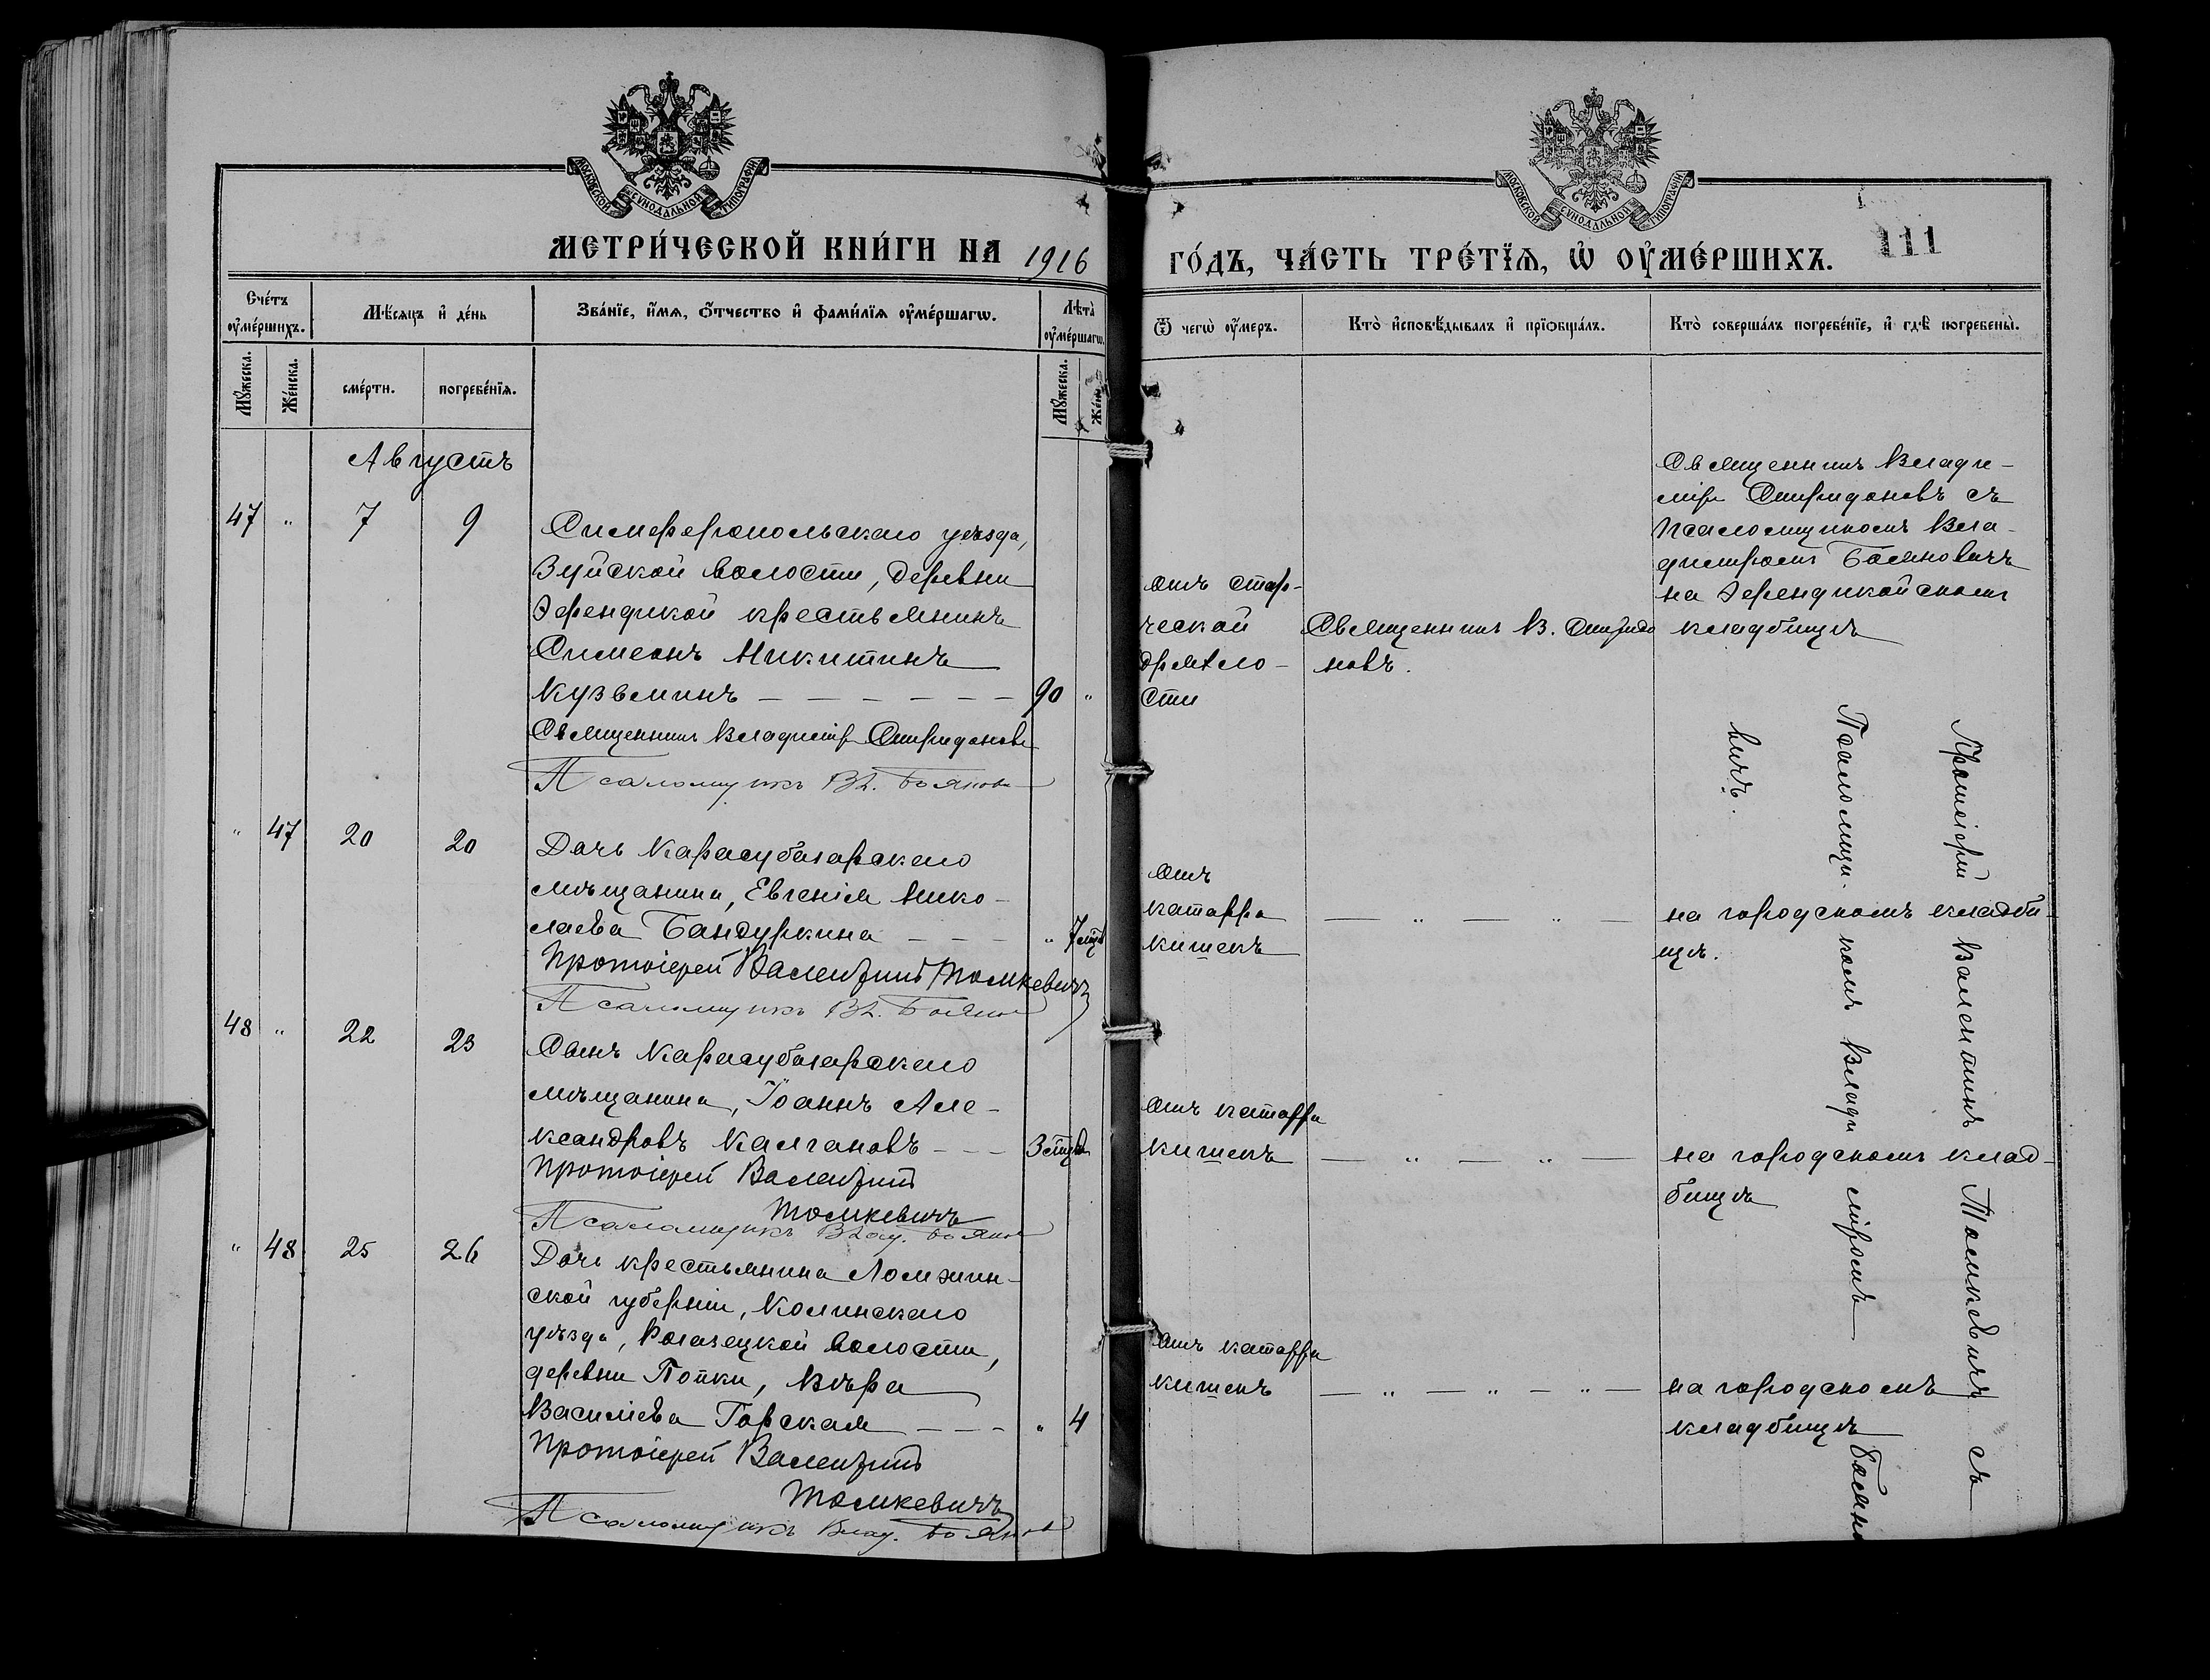 МОСКОВСКОЙ СѴНОДАЛЬНОЙ ТИПОГРАФІИ
МОСКОВСКОЙ СѴНОДАЛЬНОЙ ТИПОГРАФІИ
МЕТРИ́ЧЕСКОЙ КНИ́ГИ НА 1916
ГО́ДЪ, ЧА́СТЬ ТРЕ́ТЇѦ, Ѡ҆ ОУ҆МЕ́РШИХЪ.
111
Сче́тъ оу҆ме́ршихъ.
Мѣ́сѧцъ и҆ де́нь
Зва́нїе, и҆́мѧ, ѻ҆́тчество и҆ фами́лїѧ оу҆ме́ршагѡ.
Лѣта̀ оу҆ме́ршагѡ.
Ѿ чегѡ̀ оу҆́меръ.
Кто̀ и҆сповѣ́дывалъ и҆ прїѻбща́лъ.
Кто̀ соверша́лъ погребе́нїе, и҆ гдѣ̀ погребены̀.
Мꙋ́жеска.
Же́нска.
сме́рти.
погребе́нїѧ.
Мꙋ́жеска.
Августъ
47 " 7 9
Симферопольскаго уѣзда,
Зуйской волости, деревни
Эфендикой крестьянинъ
Симеонъ Никитинъ
Кузьминъ — — — — — — 90 "
Священникъ Владиміръ Спиридоновъ
Псаломщикъ Вл. Боянов
отъ стар-
ческой
дряхло-
сти
Священникъ В. Спиридо
новъ.
Священникъ Влади-
міръ Спиридоновъ съ
псаломщикомъ Вла-
диміромъ Бояновичъ
на Эфендикойскомъ
кладбищѣ
" 47 20 20
Дочь Карасубазарскаго
мѣщанина, Евгенія Нико-
лаева Бандуркина — — — " 7 мѣс
Протоіерей Валентинъ Томкевичъ
Псаломщикъ Вл. Боянов
отъ
катарра
кишекъ
— " — " —
на городскомъ кладби-
щѣ.
48 " 22 23
Сынъ Карасубазарскаго
мѣщанина, Іоаннъ Але-
ксандровъ Калгановъ — — — 3
Протоіерей Валентинъ
Томкевичъ
Псаломщикъ Влад. Боянов
отъ катарра
кишекъ
— " — " —
на городскомъ клад-
бищѣ
" 48 25 26
Дочь крестьянина Ломжин-
ской губерніи, Колинскаго
уѣзда, Рогазецкой волости,
деревни Попки, Вѣра
Василіева Горская — — — " 4
Протоіерей Валентинъ
Томкевичъ
Псаломщикъ Влад. Боянов
отъ катарра
кишекъ
— " — " — " —
на городскомъ
кладбищѣ
Протоіерей Валентинъ Томкевичъ съ
Псаломщи- комъ Влади міромъ Бояно
вичъ.